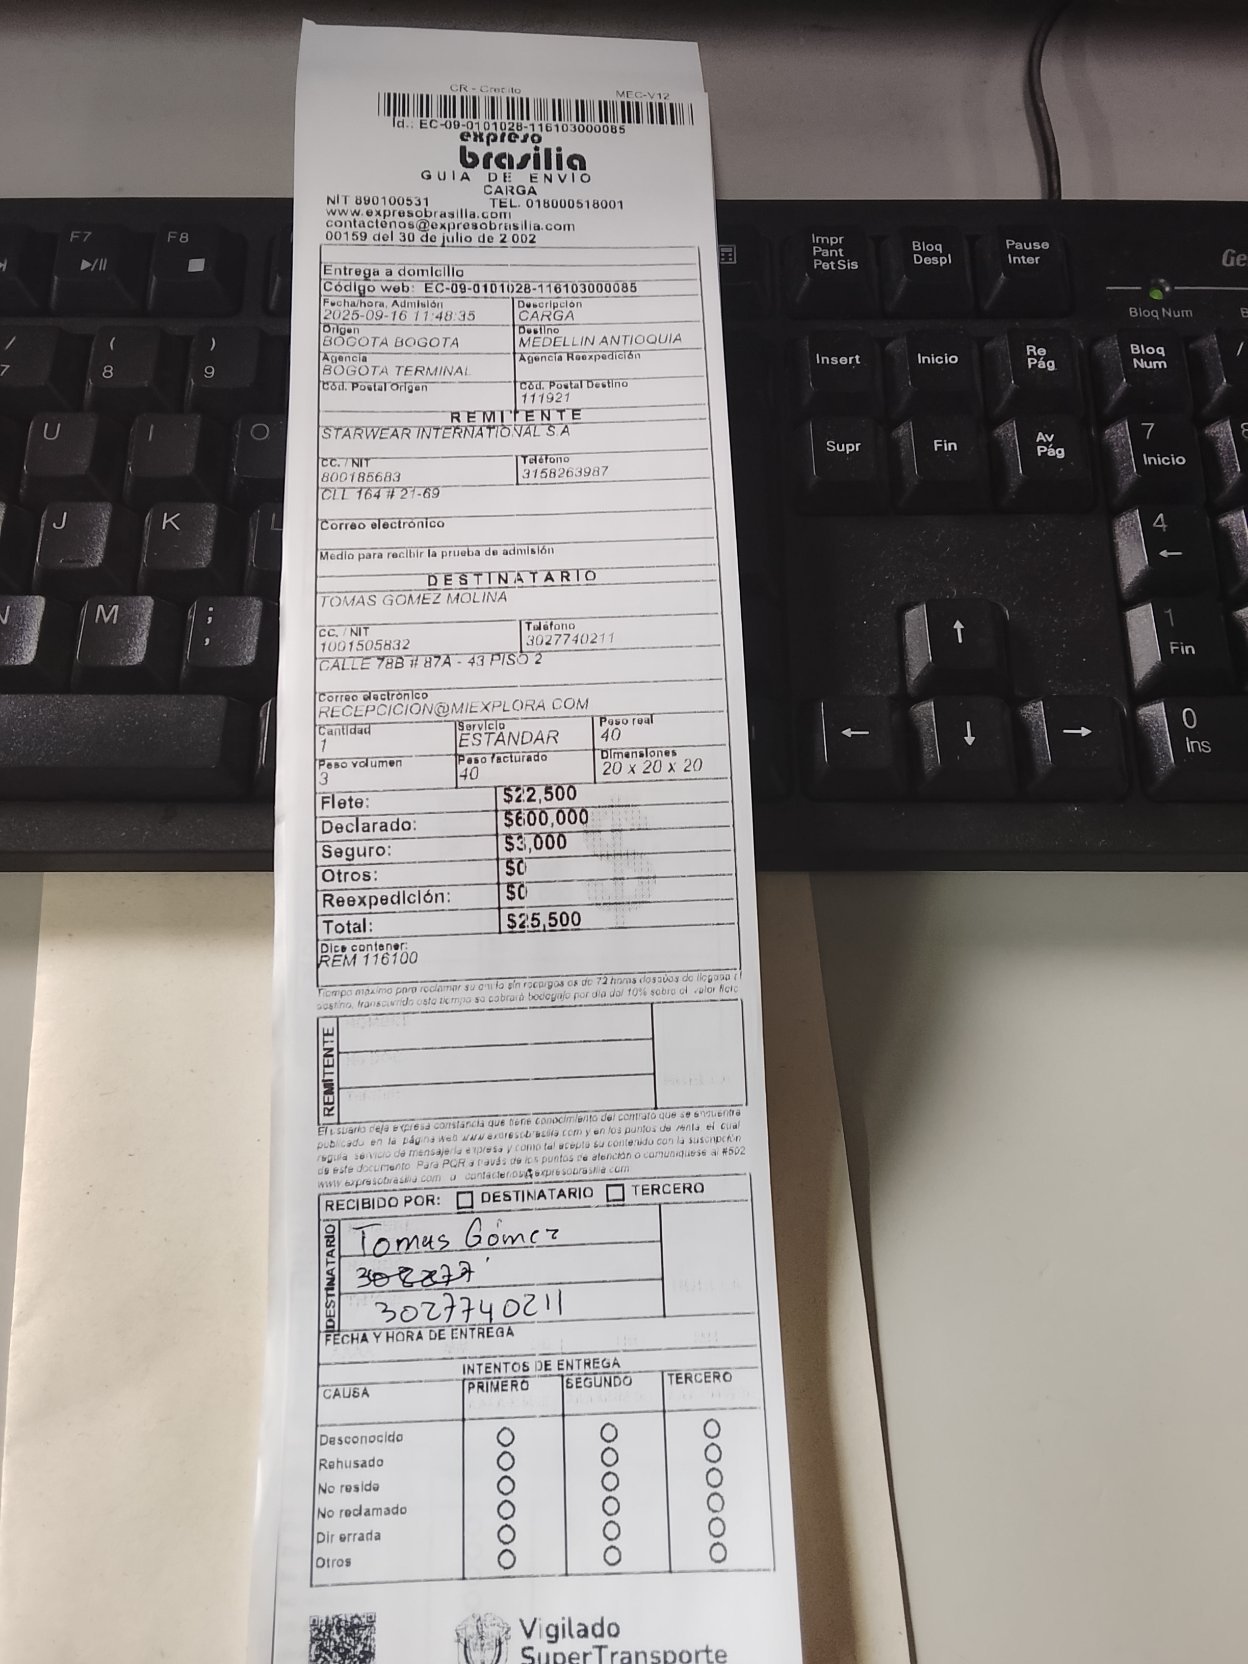 CR - Credito MEC-V12
Id.: EC-09-0101028-116103000085
expreso
brasilia
GUIA DE ENVIO
CARGA
NIT 890100531 TEL. 018000518001
www.expresobrasilia.com
contactenos@expresobrasilia.com
00159 del 30 de julio de 2 002
Entrega a domicilio
Código web: EC-09-0101028-116103000085
Fecha/hora, Admisión Descripción
2025-09-16 11:48:35 CARGA
Origen Destino
BOGOTA BOGOTA MEDELLIN ANTIOQUIA
Agencia Agencia Reexpedición
BOGOTA TERMINAL
Cód. Postal Origen Cód. Postal Destino
111921
REMITENTE
STARWEAR INTERNATIONAL S.A
CC. / NIT Teléfono
800185683 3158263987
CLL 164 # 21-69
Correo electrónico
Medio para recibir la prueba de admisión
DESTINATARIO
TOMAS GOMEZ MOLINA
CC. / NIT Teléfono
1001505832 3027740211
CALLE 78B # 87A - 43 PISO 2
Correo electrónico
RECEPCICION@MIEXPLORA COM
Cantidad Servicio Peso real
1 ESTANDAR 40
Peso volumen Peso facturado Dimensiones
3 40 20 x 20 x 20
Flete: $22,500
Declarado: $600,000
Seguro: $3,000
Otros: $0
Reexpedición: $0
Total: $25,500
Dice contener:
REM 116100
Tiempo máximo para reclamar su envío sin recargos es de 72 horas después de llegada a
destino, transcurrido este tiempo se cobrará bodegaje por día del 10% sobre el valor flete
REMITENTE
El usuario deja expresa constancia que tiene conocimiento del contrato que se encuentra
publicado en la página web www.expresobrasilia.com y en los puntos de venta el cual
regula servicio de mensajería expresa y como tal acepta su contenido con la suscripción
de este documento Para PQR a través de los puntos de atención o comuniquese al #502
www.expresobrasilia.com o contactenos@expresobrasilia.com
RECIBIDO POR: DESTINATARIO TERCERO
DESTINATARIO
Tomas Gómez
302277
3027740211
FECHA Y HORA DE ENTREGA
INTENTOS DE ENTREGA
CAUSA PRIMERO SEGUNDO TERCERO
Desconocido
Rehusado
No reside
No reclamado
Dir errada
Otros
Vigilado
SuperTransporte
F7 F8
Impr
Pant
PetSis
Bloq
Despl
Pause
Inter
Ge
Bloq Num
7 8 ( 9 )
Insert Inicio Re
Pág
Bloq
Num
/
U I O
Supr Fin Av
Pág
7
Inicio
8
J K L
4
N M ; :
1
Fin
0
Ins